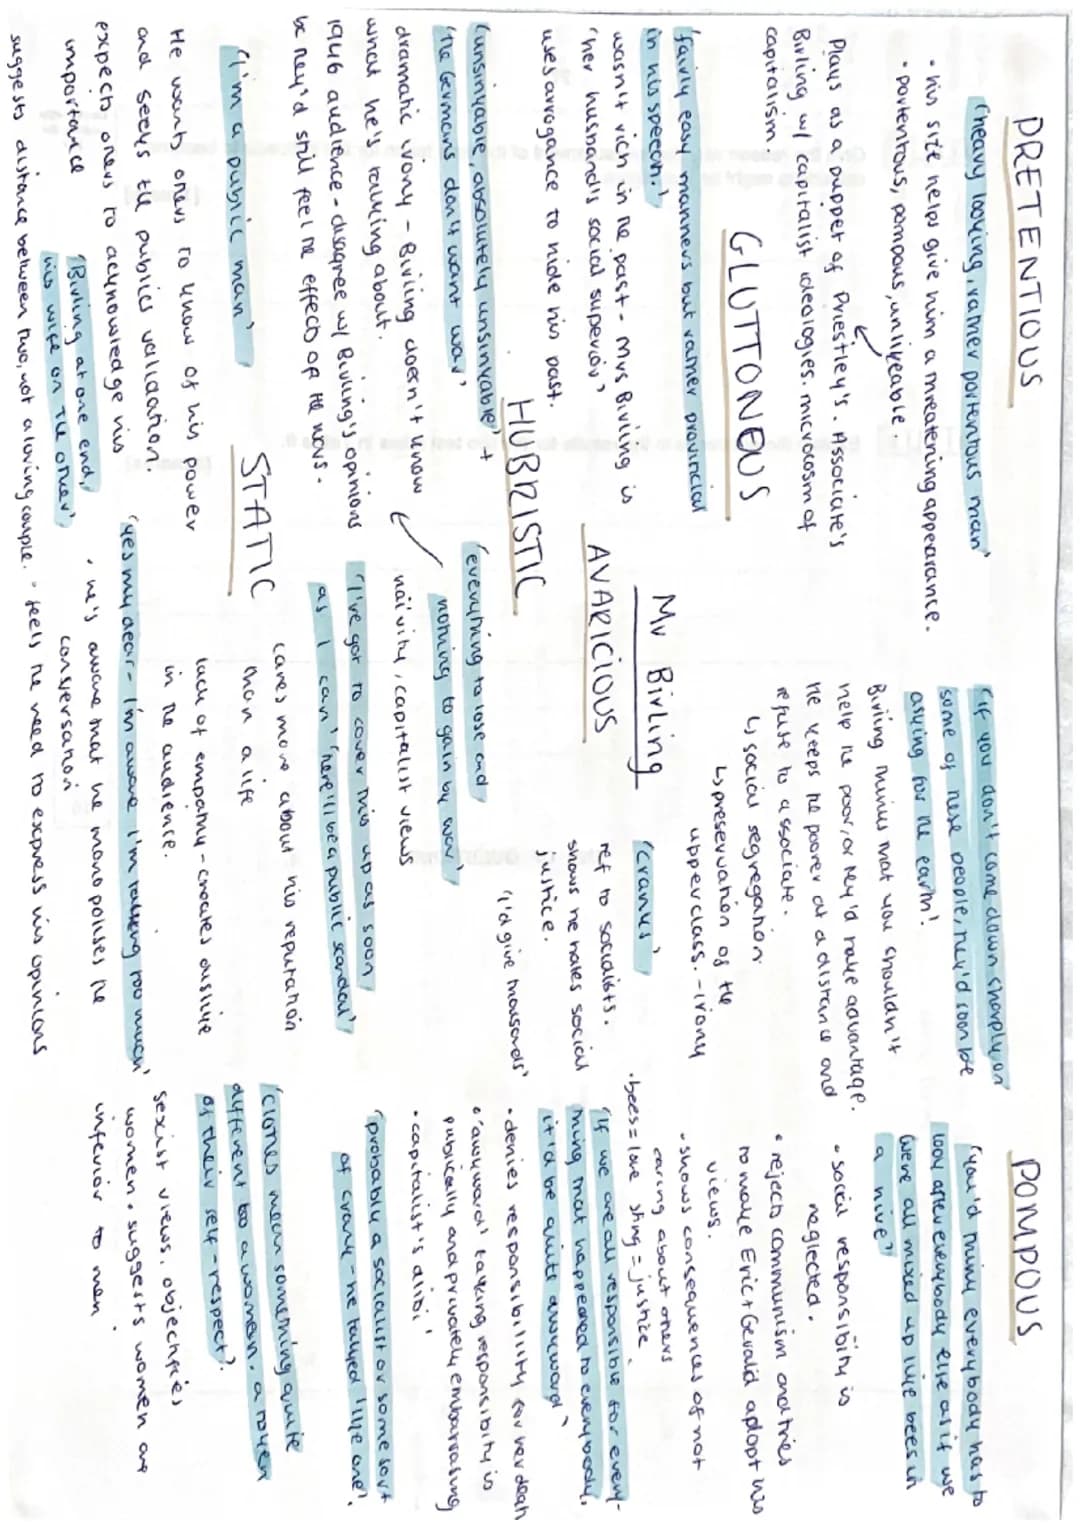 PRETENTIOUS
'heavy looking, rather portentous man'
• his size helps give him a threatening appearance.
• portentous, pompous, unlikeable.
Plays as a puppet of Priestley's. Associate's
Birling w/ capitalist ideologies. microcosm of
capitalism
GLUTTONEUS
'fairly easy manners but rather provincial
in his speech.'
wasn't rich in the past - Mrs Birling is
'her husband's social superior'
uses arrogance to hide his past.
HUBRISTIC
'unsinkable, absolutely unsinkable' +
'the Germans don't want war'
dramatic irony - Birling doesn't know
what he's talking about.
1946 audience - disagree w/ Birling's opinions
bc they'd still feel the effects of the wars.
STATIC
'I'm a public man'
He wants others to know of his power
and seeks the publics validation.
expects others to acknowledge his
importance
'Birling at one end,
his wife on the other'
suggests distance between two, not a loving couple.
Mr Birling
AVARICIOUS
'everything to lose and
nothing to gain by war'
naivity, capitalist views
'I've got to cover this up as soon
as I can' 'there'll be a public scandal'
cares more about his reputation
than a life
lack of empathy - creates dislike
in the audience.
'yes my dear - I'm aware I'm talking too much'
• he's aware that he monopolises the
conversation
• feels the need to express his opinions
'if you don't come down sharply on
some of these people, they'd soon be
asking for the earth!
Birling thinks that you shouldn't
help the poor, or they'd take advantage.
He keeps the poorer at a distance and
refuse to associate.
↳ social segregation.
↳ preservation of the
upperclass. - irony
'Cranks'
ref to socialists.
shows he hates social
justice.
'I'd give thousands'
POMPOUS
'you'd think everybody has to
look after everybody else as if we
were all mixed up like bees in
a hive'
• social responsibility is
neglected.
• rejects communism and tries
to make Eric + Gerald adopt his
views.
• shows consequences of not
caring about others
• bees = love sting = justice
'If we are all responsible for every-
thing that happened to everybody,
it'd be quite awkward'
• denies responsibility for her death
• 'awkward' taking responsibility is
publically and privately embarrasing
• capitalist's alibi'
'probably a socialist or some sort
of crank - he talked like one'.
'Clothes mean something quite
different to a women. a token
of their self-respect'.
sexist views. objectifies
women. suggests women are
inferior to men